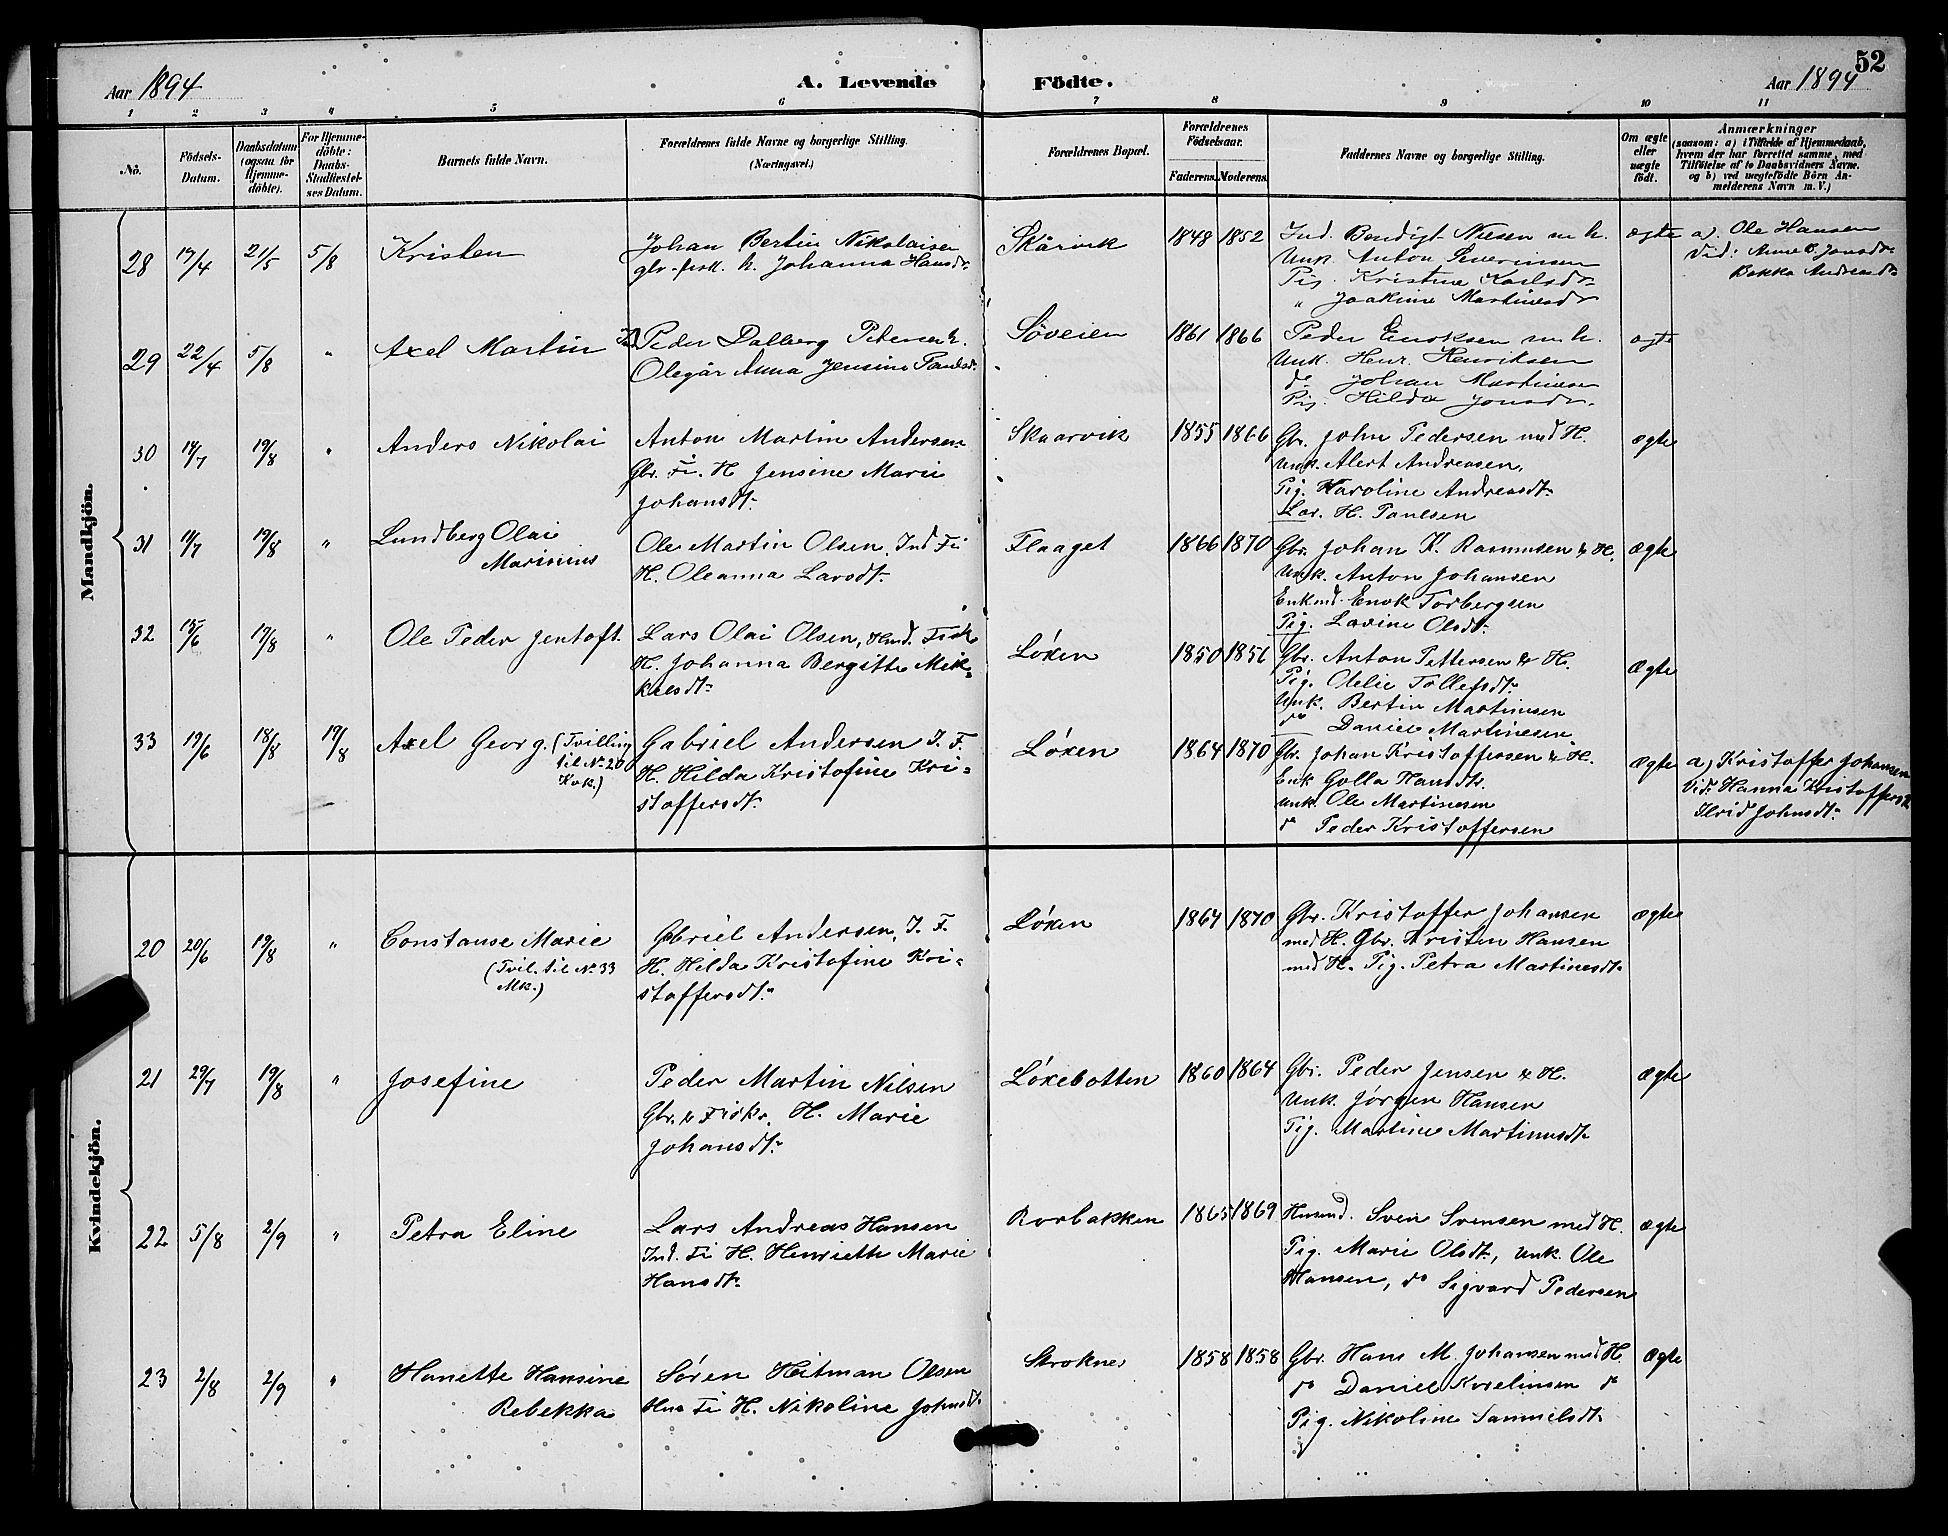 52
Aar 1894
A. Levende
Födte.
Aar 1894
1 2 3 4 5 6 7 8 9 10 11
No.
Födsels-
Datum.
Daabsdatum
(ogsaa for
Hjemme-
döbte).
For Hjemme-
döbte:
Daabs-
Stadfæstel-
ses Datum.
Barnets fulde Navn.
Forældrenes fulde Navne og borgerlige Stilling.
(Næringsvei.)
Forældrenes Bopæl.
Forældrenes
Födselsaar.
Faderens. Moderens.
Faddernes Navne og borgerlige Stilling.
Om ægte
eller
uægte
födt.
Anmærkninger
(saasom: a) i Tilfælde af Hjemmedaab,
hvem der har forrettet samme, med
Tilföielse af to Daabsvidners Navne.
og b) ved uægtefödte Börn An-
melderens Navn m. V.)
Mandkjön.
28 19/4 21/5 5/8 Kristen
Johan Bertin Nikolaisen
gbr. fisk. h. Johanna Hansdr.
Skårvik 1848 1852
Ind. Bendigt Nilsen m. h.
Unk. Anton Severinsen
Pig. Kristine Karlsdr.
" Joakime Martinesdr
ægte a) Ole Hansen
Vid: Anne C. Jonsdr
Bekka Andreasdr
29 22/4 5/8 " Axel Martin
Peder Dalberg Petersen h.
Olegår Anna Jensine Paulsdr.
Söveien 1861 1866
Peder Enoksen m. h.
Unk. Henr. Henriksen
do Johan Martinsen
Pig. Hilda Jonsdr.
ægte
30 14/7 19/8 " Anders Nikolai
Anton Martin Andersen
Gbr. Fi. H. Jensine Marie
Johansdt.
Skaarvik 1855 1866
Gbr. John Pedersen med H.
Unk. Alert Andreasen,
Pig. Karoline Andreasdt.
Lar. H. Paulsen
ægte
31 11/7 19/8 " Lundberg Olai
Marinius
Ole Martin Olsen, Ind Fi
H. Oleanna Larsdt.
Flaaget 1866 1870
Gbr. Johan K. Rasmusen & H.
Unk. Anton Johansen
Enkmd. Enok Torbergsen
Pig. Lovine Olsdt.
Ægte
32 15/6 19/8 " Ole Peder Jentoft.
Lars Olai Olsen, Hmd. Fisk
H. Johanna Bergitte Mik-
kelsdt.
Løken 1850 1856
Gbr. Anton Pettersen & H.
Pig. Otelie Tollefsdt.
Unk. Bertin Martinsen
do Daniel Martinesen
Ægte
33 19/6 18/8 19/8 Axel Georg. (Tvilling
til No 20
Kvk.)
Gabriel Andersen I. F.
H. Hilda Kristofine Kri-
stoffersdt.
Løken 1864 1870
Gbr. Johan Kristoffersen & H.
Enk Golla Hansdt.
Unk. Ole Martinesen
do Peder Kristoffersen
Ægte a) Kristoffer Johansen
Vid: Hanna Kristoffersdt
Ilrid Johnsdt.
Kvindekjön.
20 20/6 19/8 " Constanse Marie
(Tvil. til No 33
Mk.)
Gbriel Andersen, I. F.
H. Hilda Kristofine Kri-
stoffersdt.
Løken 1864 1870
Gbr. Kristoffer Johansen
med H. Gbr. Kristen Hansen
med H. Pig. Petra Martinesdt.
ægte
21 29/7 19/8 " Josefine
Peder Martin Nilsen
Gbr. & Fisker, H. Marie
Johansdt.
Løkebotten 1860 1864
Gbr. Peder Jensen & H.
Unk. Jørgen Hansen
Pig. Martine Martinusdt.
ægte
22 5/8 2/9 " Petra Eline
Lars Andreas Hansen
Ind. Fi H. Henriette Marie
Hansdt.
Rorbakken 1865 1869
Husmd. Sven Svensen med H.
Pig. Marie Olsdt, unk. Ole
Hansen, do Sigvard Pedersen
ægte
23 2/8 2/9 " Hanette Hansine
Rebekka
Søren Heitman Olsen
Hus Fi H. Nikoline Johnsdt.
Stroknes 1858 1858
Gbr. Hans M. Johansen med H.
do Daniel Korelinsen do
Pig. Nikoline Samuelsdt.
Ægte